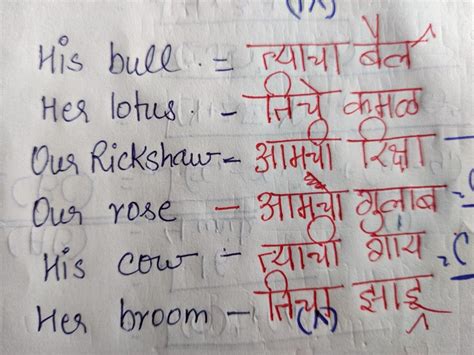 His bull . = त्याचा बैल
Her lotus - तिचे कमळ
Our Rickshaw - आमची रिक्षा
Our rose - आमचा गुलाब
His cow - त्याची गाय
Her broom - तिचा झाडू